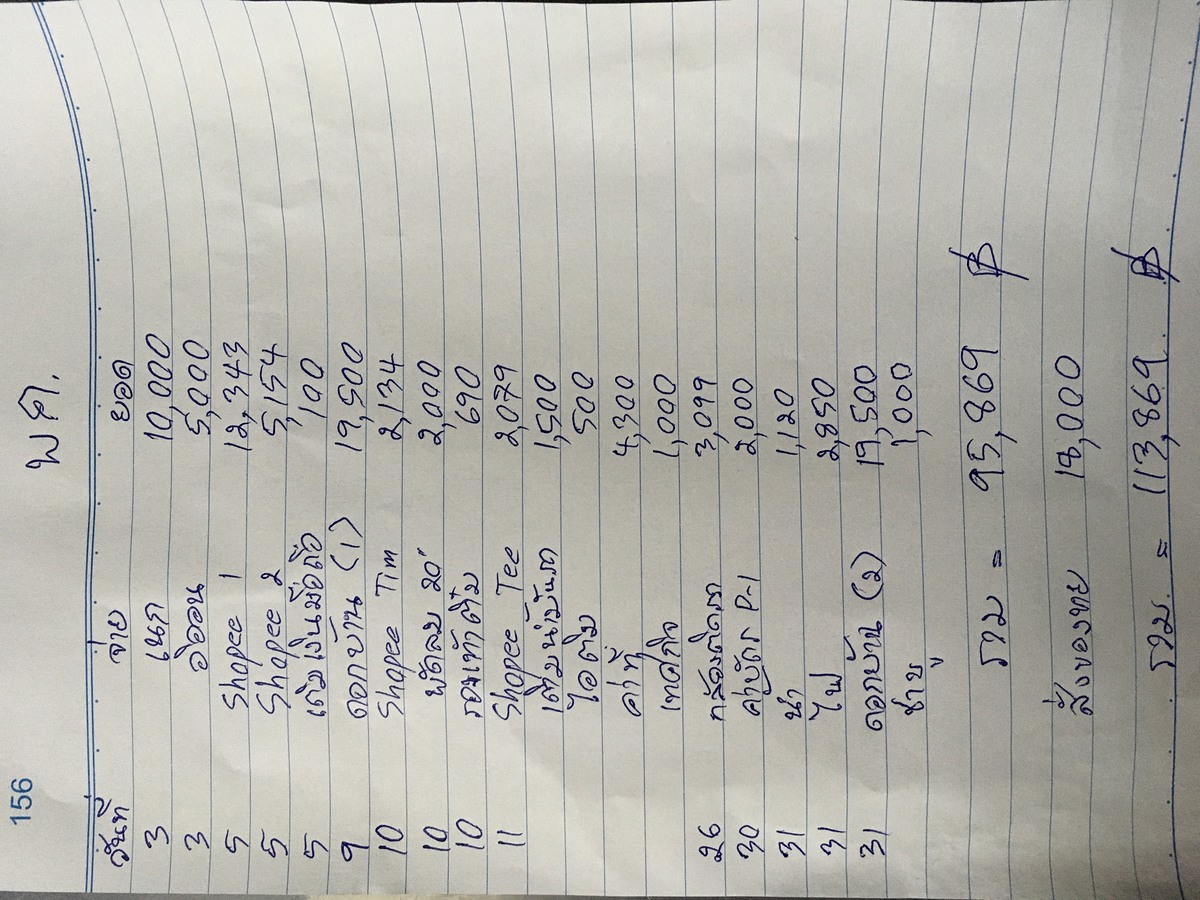 156
พ.ค.
วันที่ จ่าย ยอด
3 เนค 10,000
3 อิออน 5,000
5 Shopee 1 12,343
5 Shopee 2 5,154
5 เติมเงินมือถือ 100
9 ดอกบ้าน (1) 19,500
10 Shopee Tim 2,134
10 พัดลม 20" 2,000
10 รองเท้าติ๋ม 690
11 Shopee Tee 2,079
เติมน้ำมันรถ 1,500
ไอติม 500
ค่าที่ 4,300
เทศกิจ 1,000
26 กล้องติดรถ 3,099
30 ค่าบัตร P-1 2,000
31 น้ำ 1,120
31 ไฟ 2,850
31 ดอกบ้าน (2) 19,500
1,000
รวม = 95,869 ฿
สั่งของขาย 18,000
รวม = 113,869 ฿